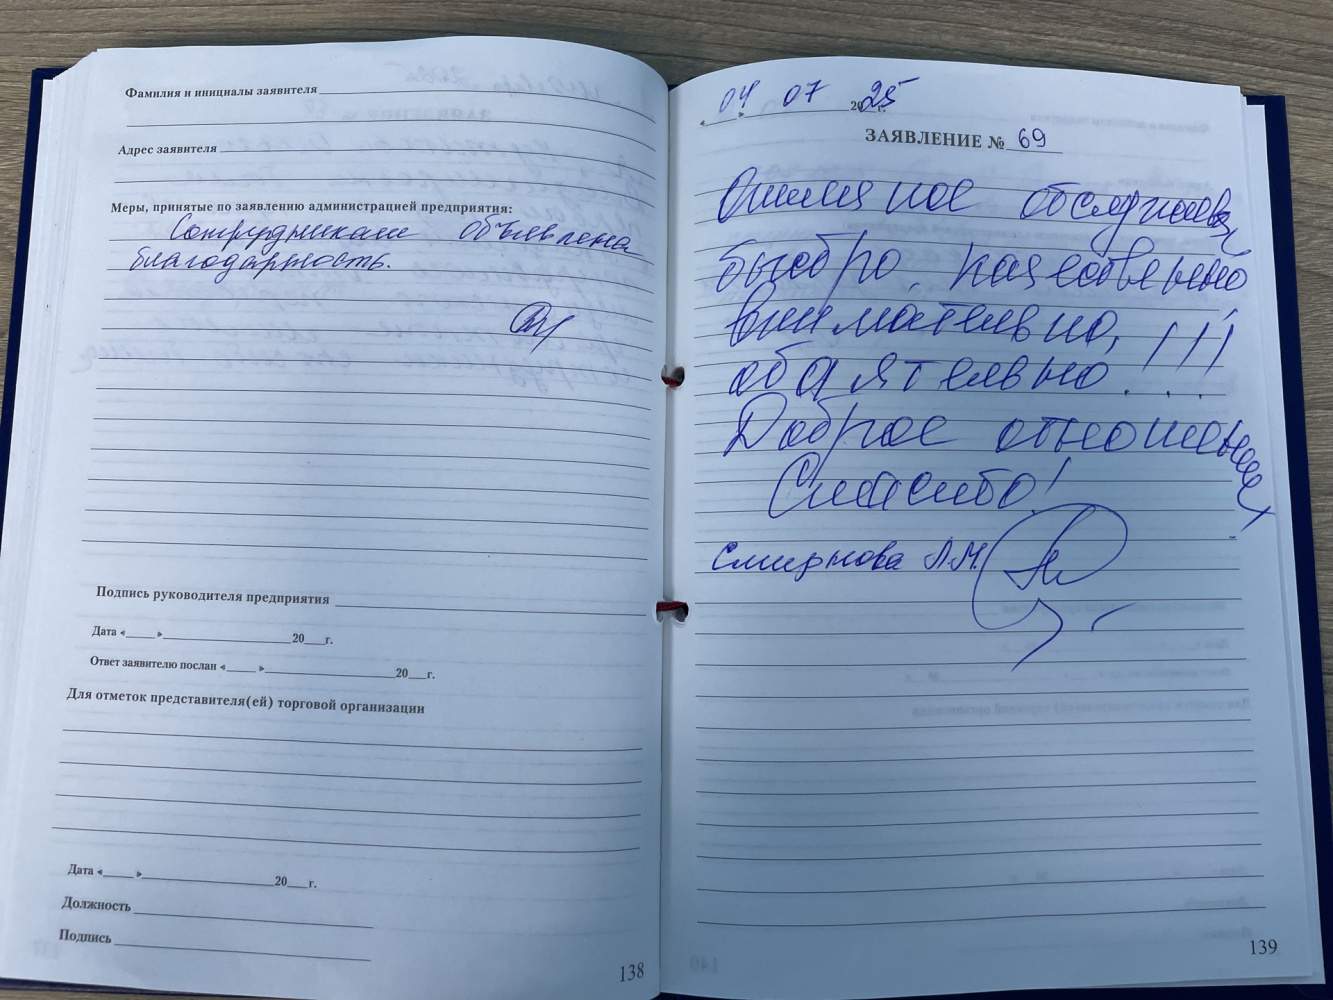 Фамилия и инициалы заявителя
Адрес заявителя
Меры, принятые по заявлению администрацией предприятия:
Сотрудникам объявлена
благодарность.
Подпись руководителя предприятия
Дата «___» ___ 20__г.
Ответ заявителю послан «___» ___ 20__г.
Для отметок представителя(ей) торговой организации
Дата «___» ___ 20__г.
Должность
Подпись
138
«04» 07 2025 г.
ЗАЯВЛЕНИЕ № 69
Отличное
быстро,
внимательно, !!!
обаятельно
Доброе отношение,
Спасибо!
Смирнова Л.М.
139